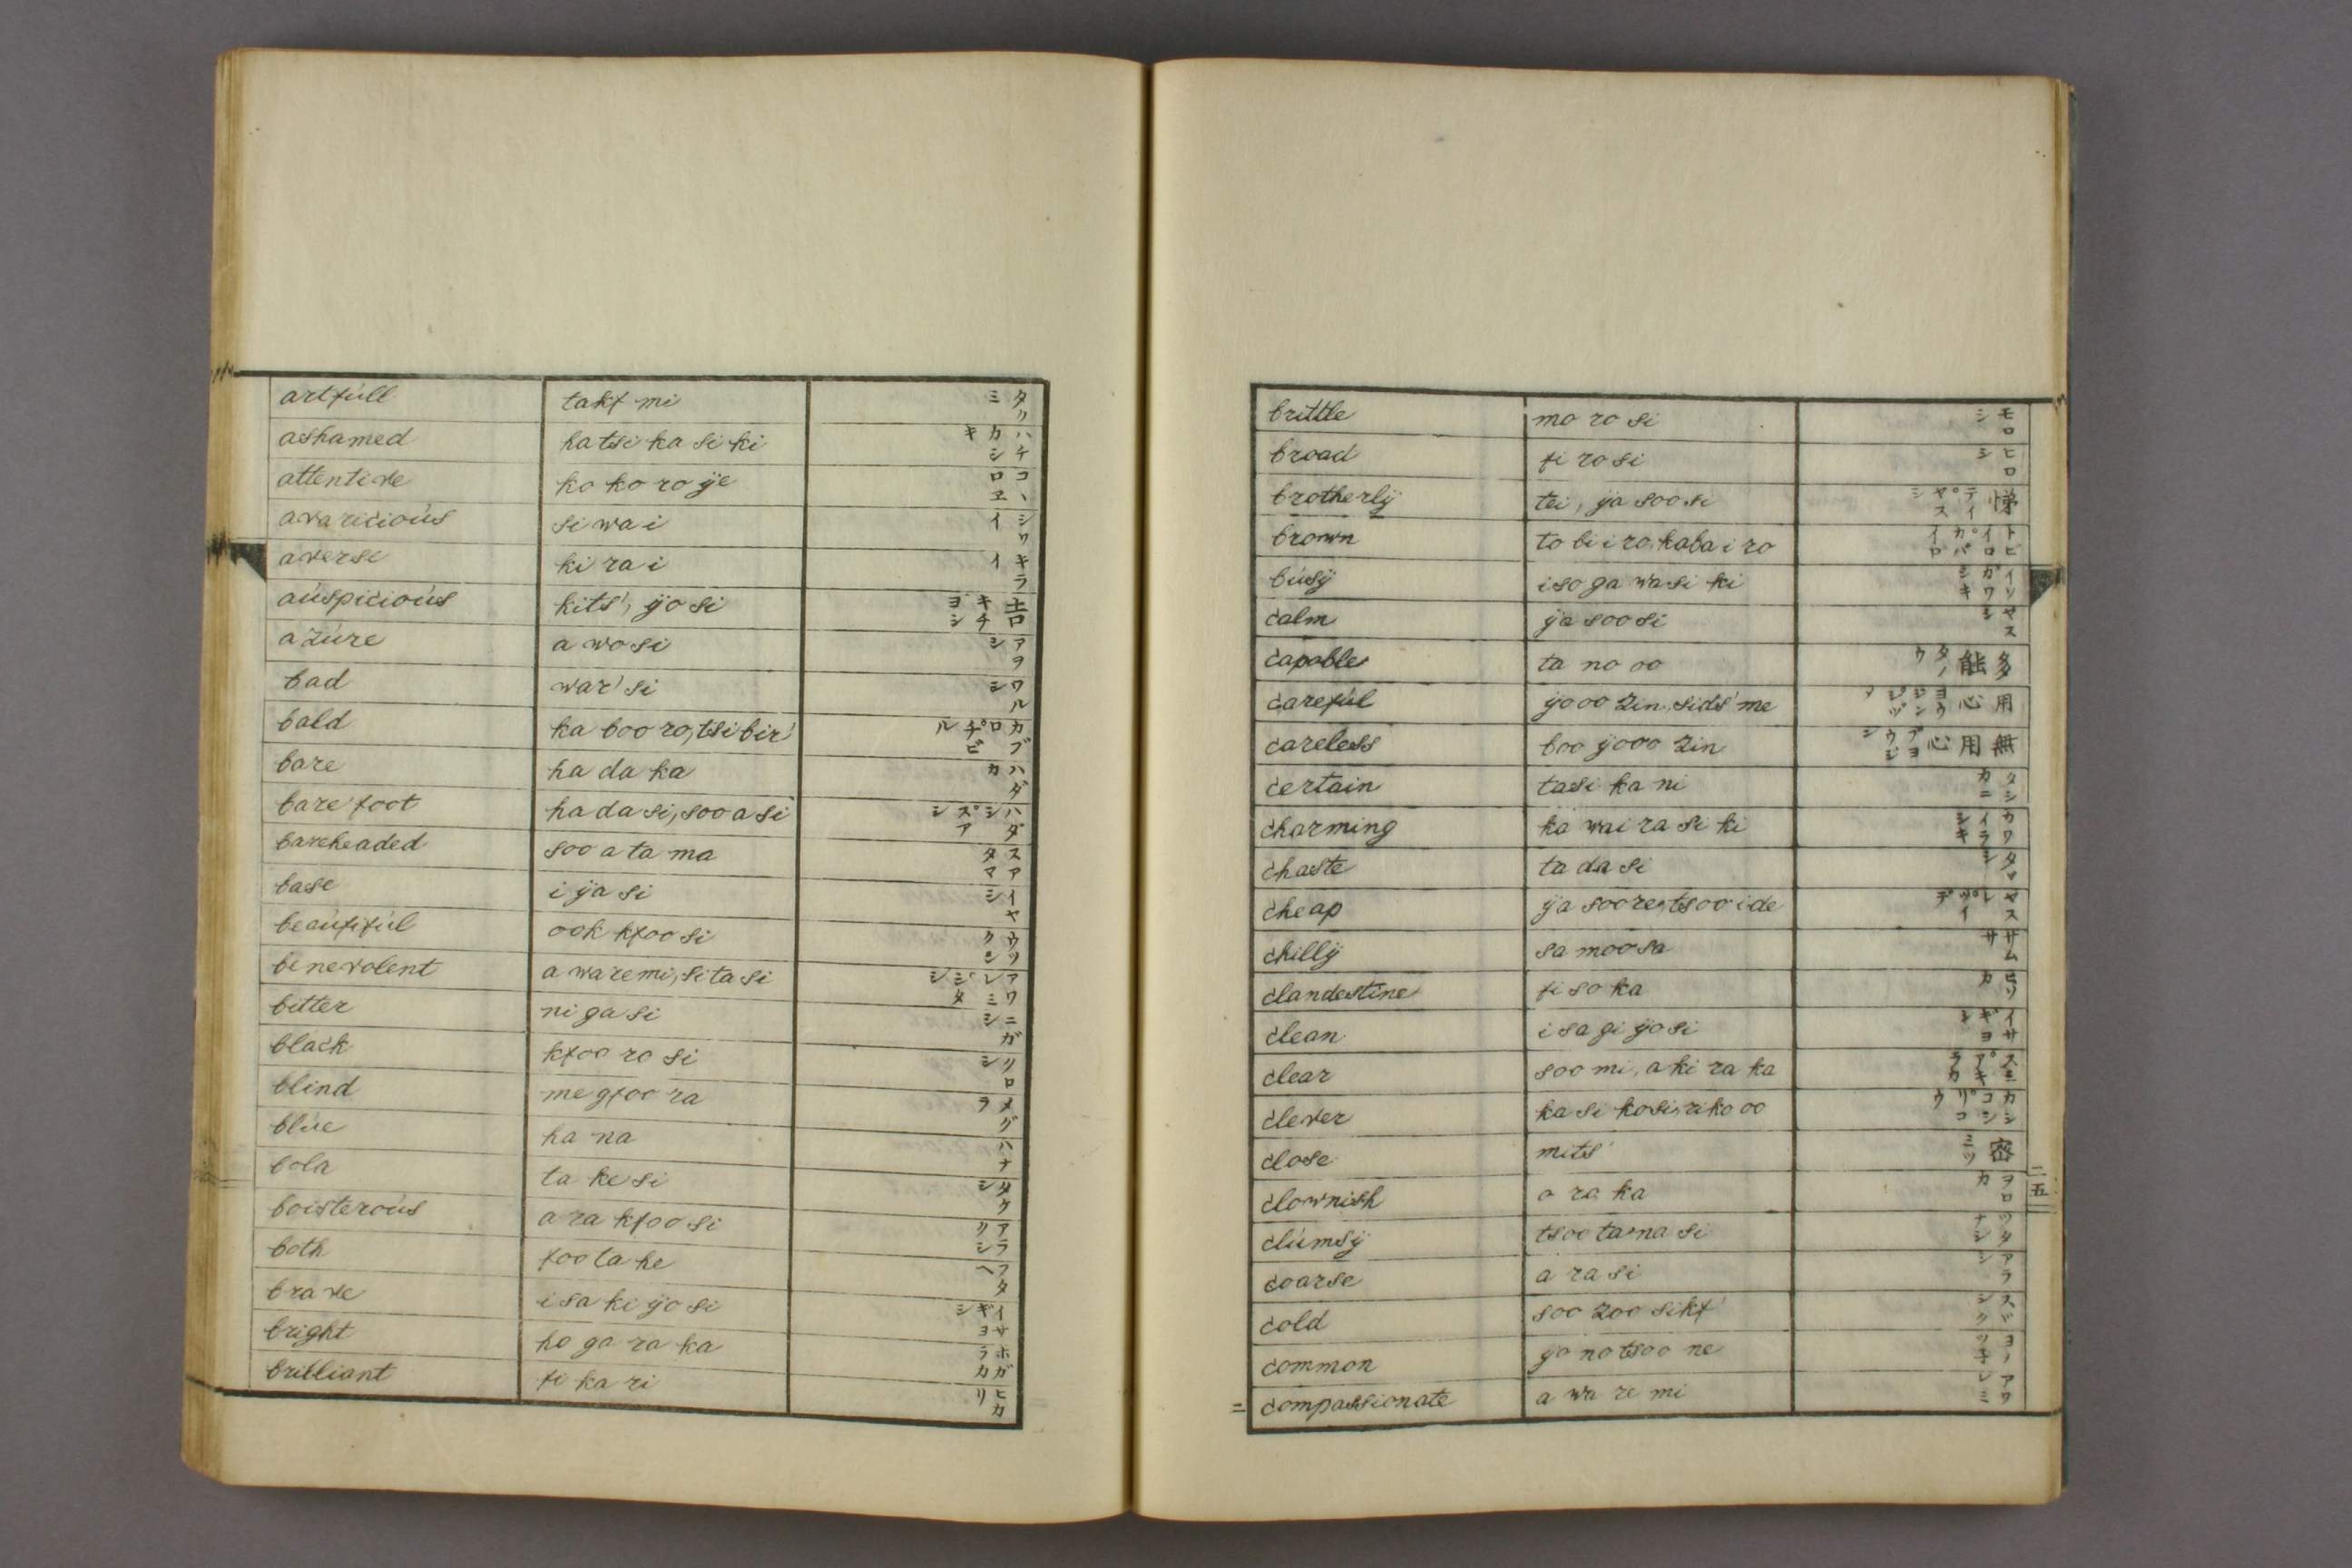 artfúll takf mi タクミ
ashamed ha tsi ka si ki ハチカシキ
attentive ko ko ro ÿe コヽロヱ
avaricioús si wa i シワイ
averse ki ra i キライ
aúspicioús kits', ÿo si 吉キチヨシ
azúre a wo si アヲシ
bad war' si ワルシ
bald ka boo ro, tsi bir' カブロチビル
bare ha da ka ハダカ
bare foot ha da si, soo a si ハダシスアシ
bareheaded soo a ta ma スアタマ
base i ÿa si イヤシ
beaútifúl ook kfoo si ウツクシ
benevolent a wa re mi, si ta si アワレミシタシ
bitter ni ga si ニガシ
black kfoo ro si クロシ
blind me gfoo ra メグラ
blúe ha na ハナ
bola ta ke si タケシ
boisteroús a ra kfoo si アラクシ
both foo ta he フタヘ
brave i sa ki ÿo si イサギヨシ
bright ho ga ra ka ホガラカ
brilliant fi ka ri ヒカリ
brittle mo ro si モロシ
broad fi ro si ヒロシ
brotherlÿ tei, ÿa soo si 悌テイヤスシ
brown to bi i ro, kaba i ro トビイロカバイロ
búsÿ i so ga wa si ki イソガワシキ
calm ÿa soo si ヤスシ
capable ta no oo 多能タノウ
carefúl ÿo oo zin, sids' me 用心ヨウジンシヅメ
careless boo ÿooo zin 無用心
certain tasi ka ni タシカニ
charming ka wai ra si ki カワイラシキ
chaste ta da si タヾシ
cheap ÿa soo re, tsoo i de ヤスレツイデ
chillÿ sa moo sa サムサ
clandestine fi so ka ヒソカ
clean i sa gi ÿo si イサギヨシ
clear soo mi, a ki ra ka スミアキラカ
clever ka si kosi, ri ko oo カシコシリコウ
close mits' 密ミツ
clownish o ro ka ヲロカ
clúmsÿ tsoo ta na si ツタナシ
coarse a ra si アラシ
cold soo zoo sikf' スヾシク
common ÿo no tsoo ne ヨノツ子
compassionate a wa re mi アワレミ
二五